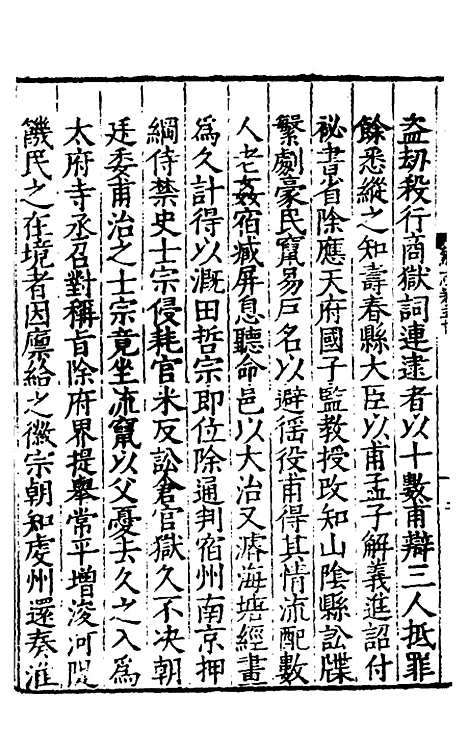 盜刼殺行商獄詞連逮者以十數甫辯三人抵罪
餘悉縱之知壽春縣大臣以甫孟子解義進詔付
祕書省除應天府國子監教授改知山陰縣訟牒
繁劇豪民竄易戶名以避徭役甫得其情流配數
人老姦宿臧屏息聽命邑以大治又濬海塘經畫
爲久計得以溉田哲宗即位除通判宿州南京押
綱侍禁史士宗侵耗官米反訟倉官獄久不决朝
廷委甫治之士宗竟坐流竄以父憂去久之入爲
太府寺丞召對稱旨除府界提舉常平增浚河隄
饑民之在境者因廪給之徽宗朝知虔州還奏淮